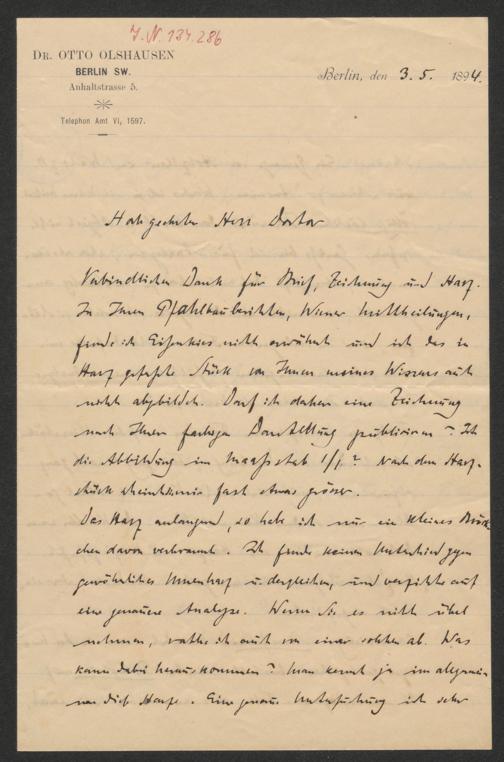 J. N. 134.286
DR. OTTO OLSHAUSEN
BERLIN SW.
Anhaltstrasse 5.
Telephon Amt VI, 1597.
Berlin, den 3. 5. 1894.
Hochgeehrter Herr Doctor
Verbindlichen Dank für Brief, Zeichnung und Harz.
In Ihren Pfahlbauberichten, Wiener Mittheilungen,
finde ich Eisenkies nicht erwähnt und ist das in
Harz gefaßte Stück von Ihnen meines Wissens auch
nicht abgebildet. Darf ich daher eine Zeichnung
nach Ihrer farbigen Darstellung publiciren? Ist
die Abbildung im Maaßstab 1/1? Nach dem Harz-
stück scheint fast etwas grösser.
Das Harz anlangend, so habe ich nur ein kleines Bröck-
chen davon verbrannt. Ich finde keinen Unterschied gegen
gewöhnliches Urnenharz u. dergleichen, und verzichte auf
eine genauere Analyse. Wenn Sie es nicht übel
nehmen, rathe ich auch von einer solchen ab. Was
kann dabei herauskommen? Man kennt ja im allgemei-
nen diese Harze. Eine genaue Untersuchung ist sehr